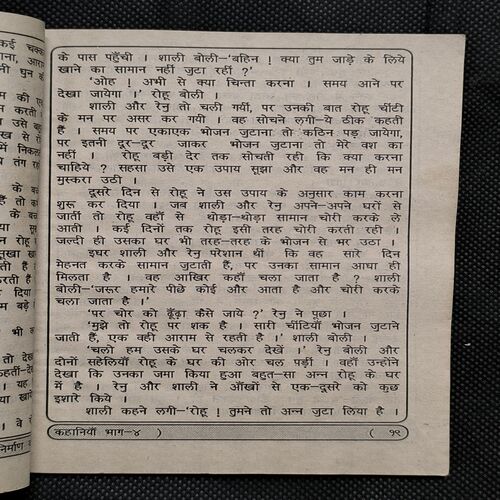 के पास पहुँची । शाली बोली–'बहिन ! क्या तुम जाड़े के लिये
खाने का सामान नहीं जुटा रहीं ?'
'ओह ! अभी से क्या चिन्ता करना । समय आने पर
देखा जायेगा ।' रोहू बोली ।
शाली और रेनु तो चली गयीं, पर उनकी बात रोहू चींटी
के मन पर असर कर गयी । वह सोचने लगी–ये ठीक कहती
हैं । समय पर एकाएक भोजन जुटाना तो कठिन पड़ जायेगा,
पर इतनी दूर–दूर जाकर भोजन जुटाना तो मेरे वश का
नहीं । रोहू बड़ी देर तक सोचती रही कि क्या करना
चाहिये ? सहसा उसे एक उपाय सूझा और वह मन ही मन
मुस्करा उठी ।
दूसरे दिन से रोहू ने उस उपाय के अनुसार काम करना
शुरू कर दिया । जब शाली और रेनु अपने–अपने घरों से
जातीं तो रोहू वहाँ से थोड़ा–थोड़ा सामान चोरी करके ले
आती । कई दिनों तक रोहू इसी तरह चोरी करती रही ।
जल्दी ही उसका घर भी तरह–तरह के भोजन से भर उठा ।
इधर शाली और रेनु परेशान थीं कि वह सारे दिन
मेहनत करके सामान जुटाती हैं, पर उनका सामान आधा ही
मिलता है । वह आखिर कहाँ चला जाता है ? शाली
बोली–'जरूर हमारे पीछे कोई और आता है और चोरी करके
चला जाता है ।'
'पर चोर को ढूँढ़ा कैसे जाये ?' रेनु ने पूछा ।
'मुझे तो रोहू पर शक है । सारी चींटियाँ भोजन जुटाने
जाती हैं, एक वही आराम से रहती है ।' शाली बोली ।
'चलो हम उसके घर चलकर देखें ।' रेनु बोली और
दोनों सहेलियाँ रोहू के घर की ओर चल पड़ीं । वहाँ उन्होंने
देखा कि उनका जमा किया हुआ बहुत–सा अन्न रोहू के घर
में है । रेनु और शाली ने आँखों से एक–दूसरे को कुछ
इशारे किये ।
शाली कहने लगी–'रोहू ! तुमने तो अन्न जुटा लिया है ।
कहानियाँ भाग–४ ) ( १९